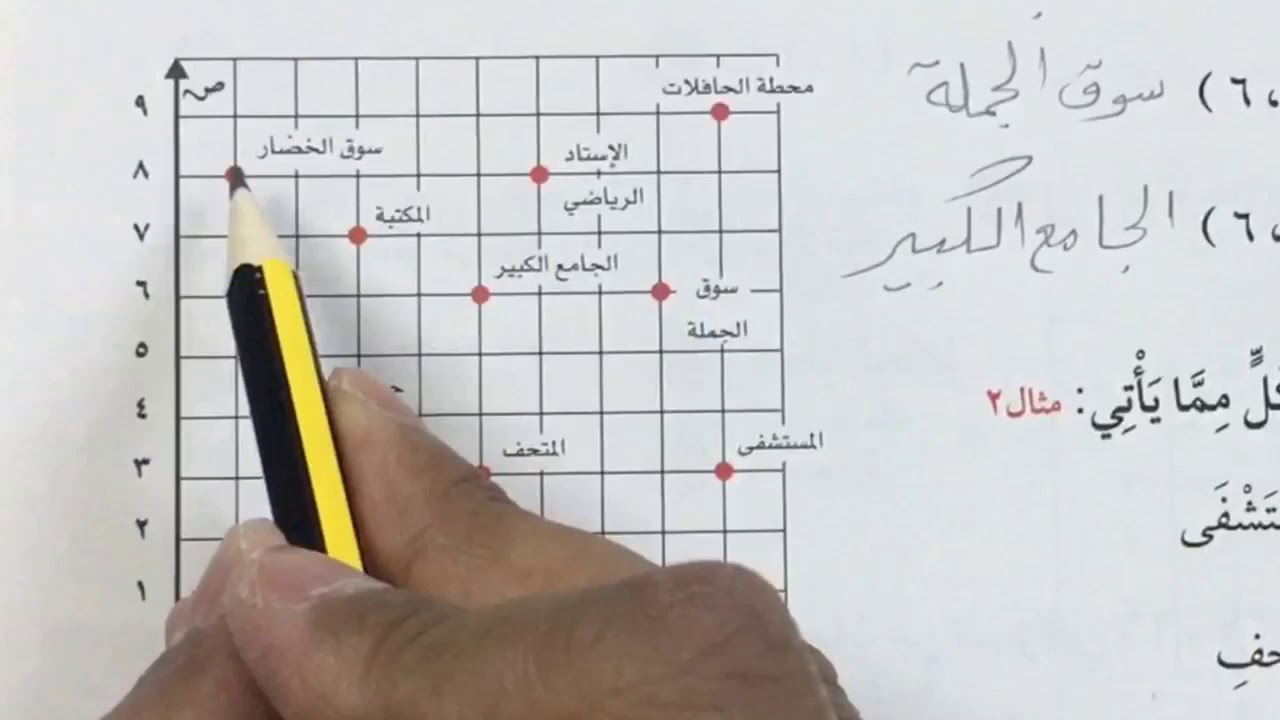 ص
٩
محطة الحافلات
سوق الخضار
٨
الإستاد
الرياضي
٧
المكتبة
٦
الجامع الكبير
سوق
الجملة
٥
٤
٣
المتحف
المستشفى
٢
١
، ٦ ) سوق الجملة
، ٦ ) الجامع الكبير
مِمَّا يَأْتِي: مثال٢